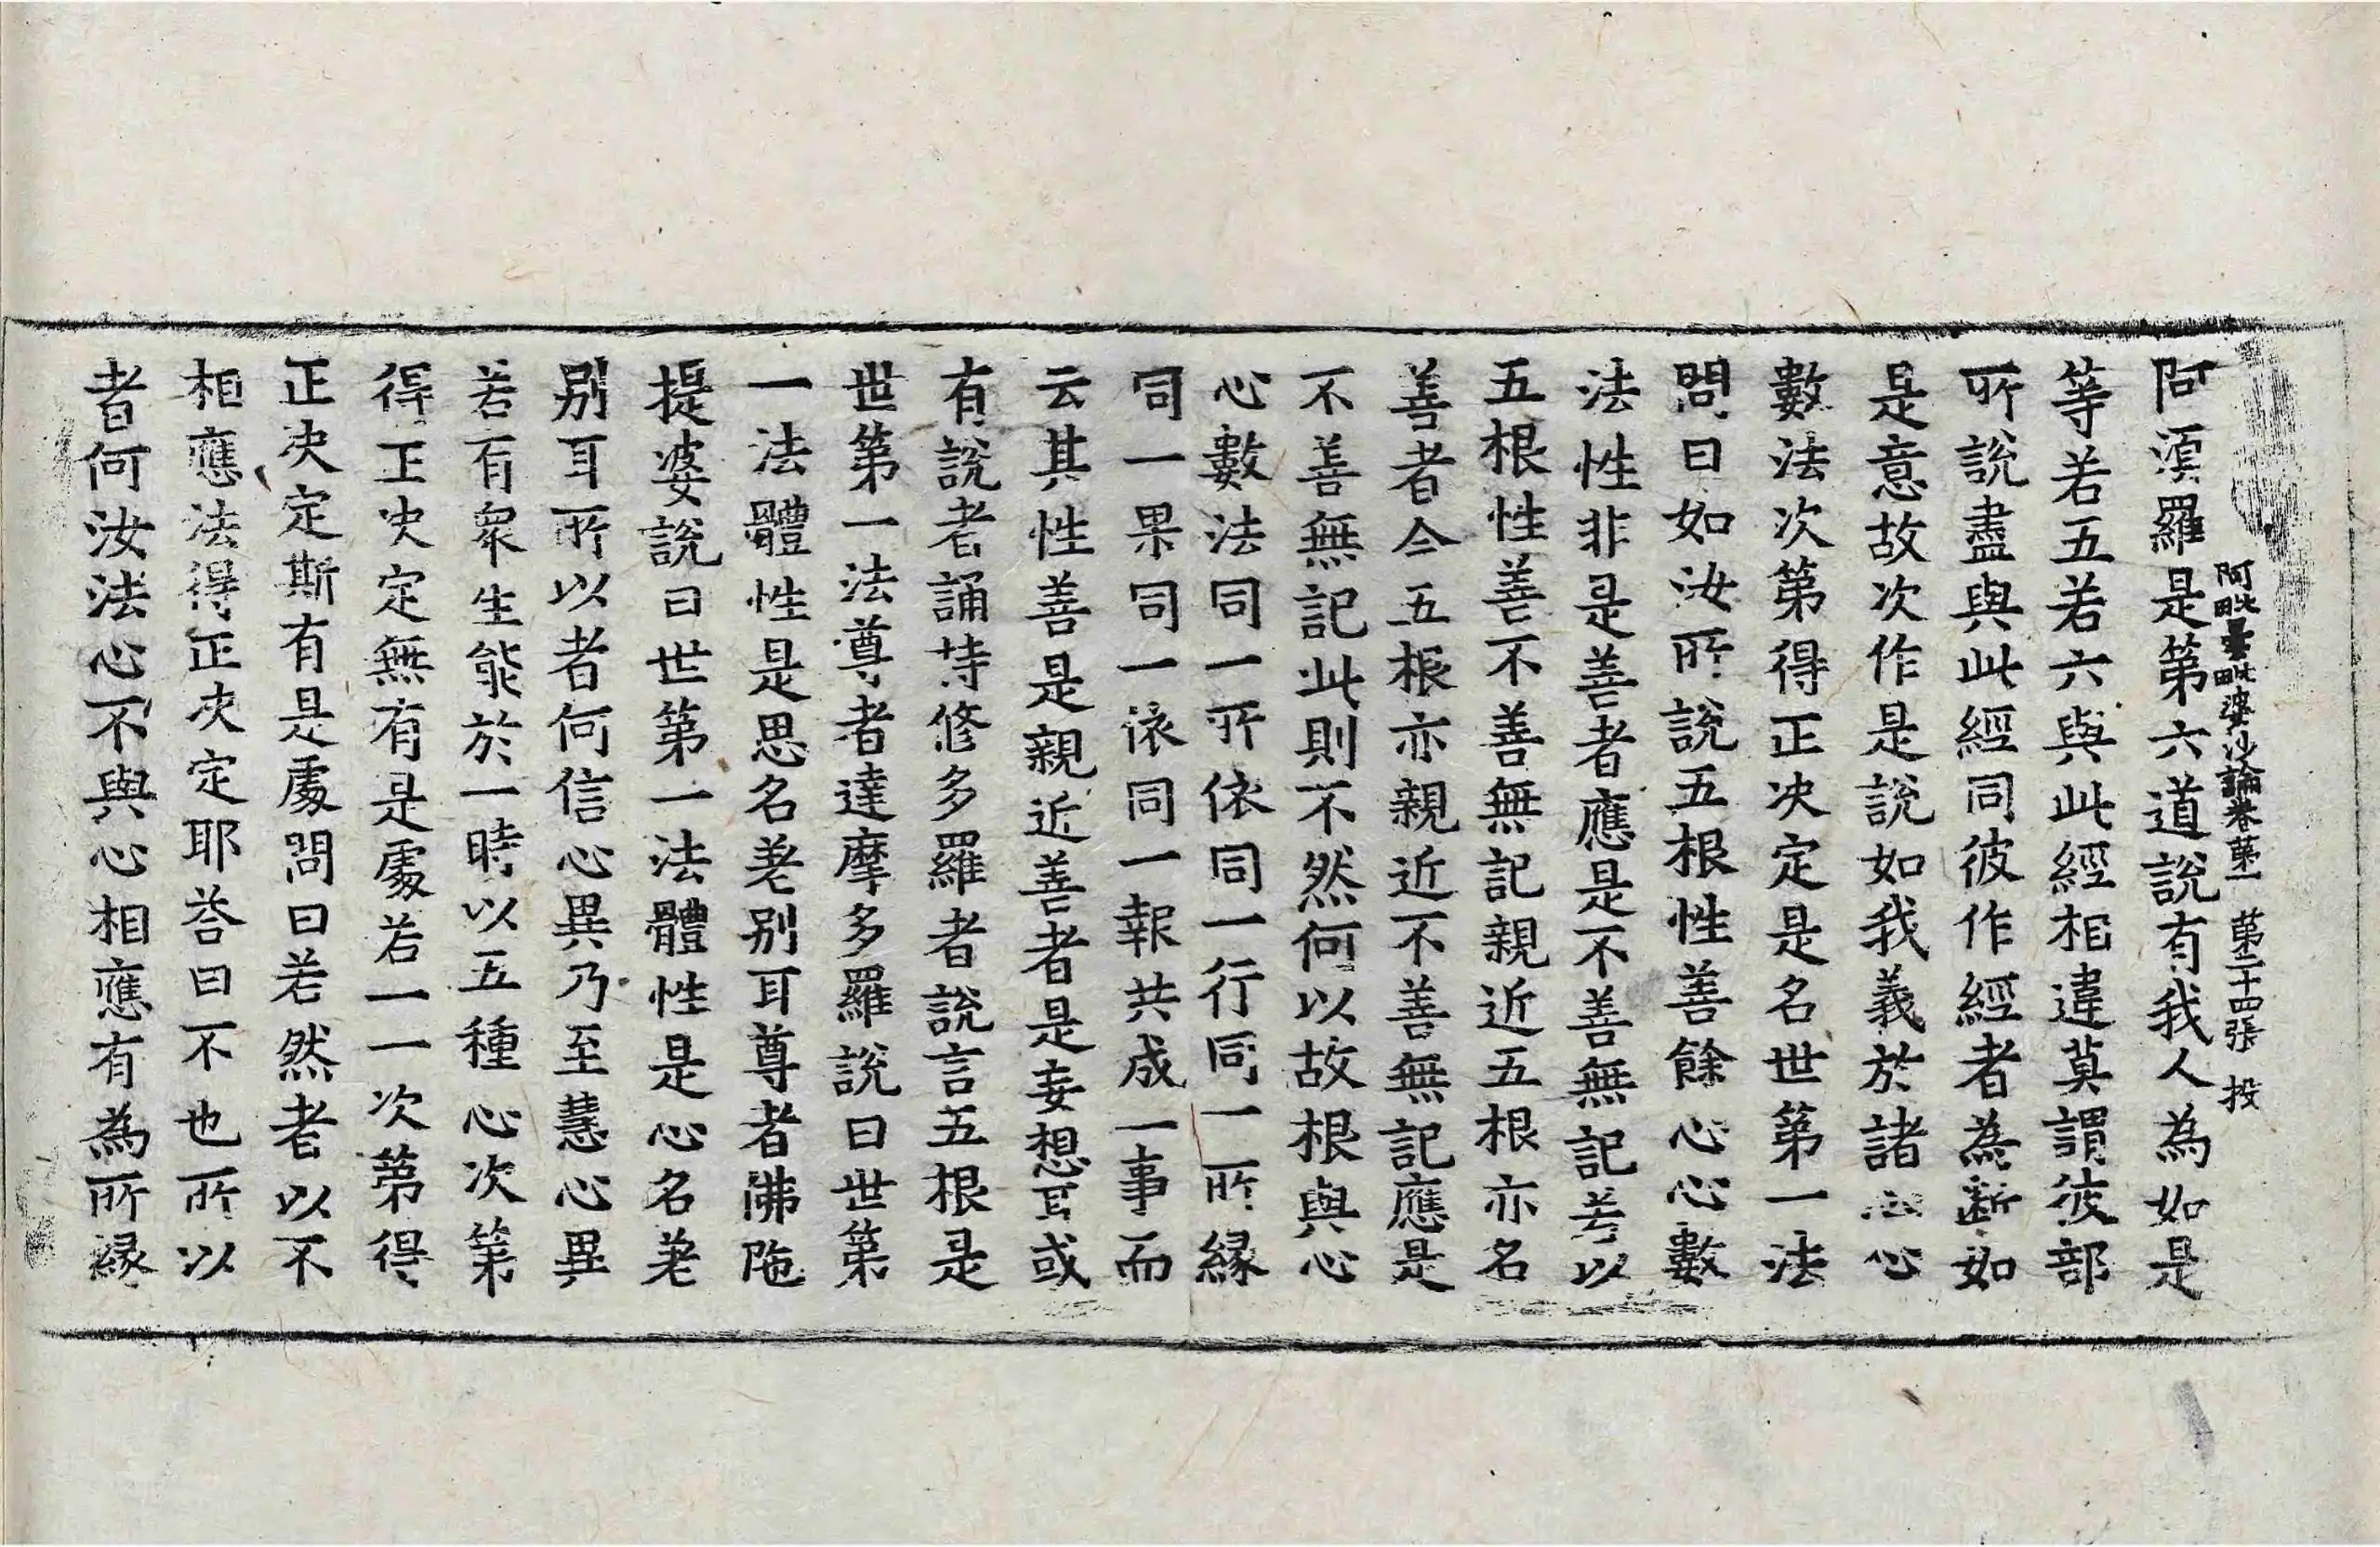 阿毗曇毗婆沙論卷第一 第二十四張 投
阿湏羅是第六道說有我人為如是
等若五若六與此經相違莫謂彼部
所說盡與此經同彼作經者為斷如
是意故次作是說如我義於諸心心
數法次第得正决定是名世第一法
問曰如汝所說五根性善餘心心數
法性非是善者應是不善無記若以
五根性善不善無記親近五根亦名
善者今五根亦親近不善無記應是
不善無記此則不然何以故根與心
心數法同一所依同一行同一所縁
同一果同一依同一報共成一事而
云其性善是親近善者是妄想耳或
有說者誦持修多羅者說言五根是
世第一法尊者達摩多羅說曰世第
一法體性是思名差别耳尊者佛陁
提婆說曰世第一法體性是心名差
别耳所以者何信心異乃至慧心異
若有衆生能於一時以五種心次第
得正决定無有是處若一一次第得
正决定斯有是處問曰若然者以不
相應法得正决定耶荅曰不也所以
者何汝法心不與心相應有為所縁